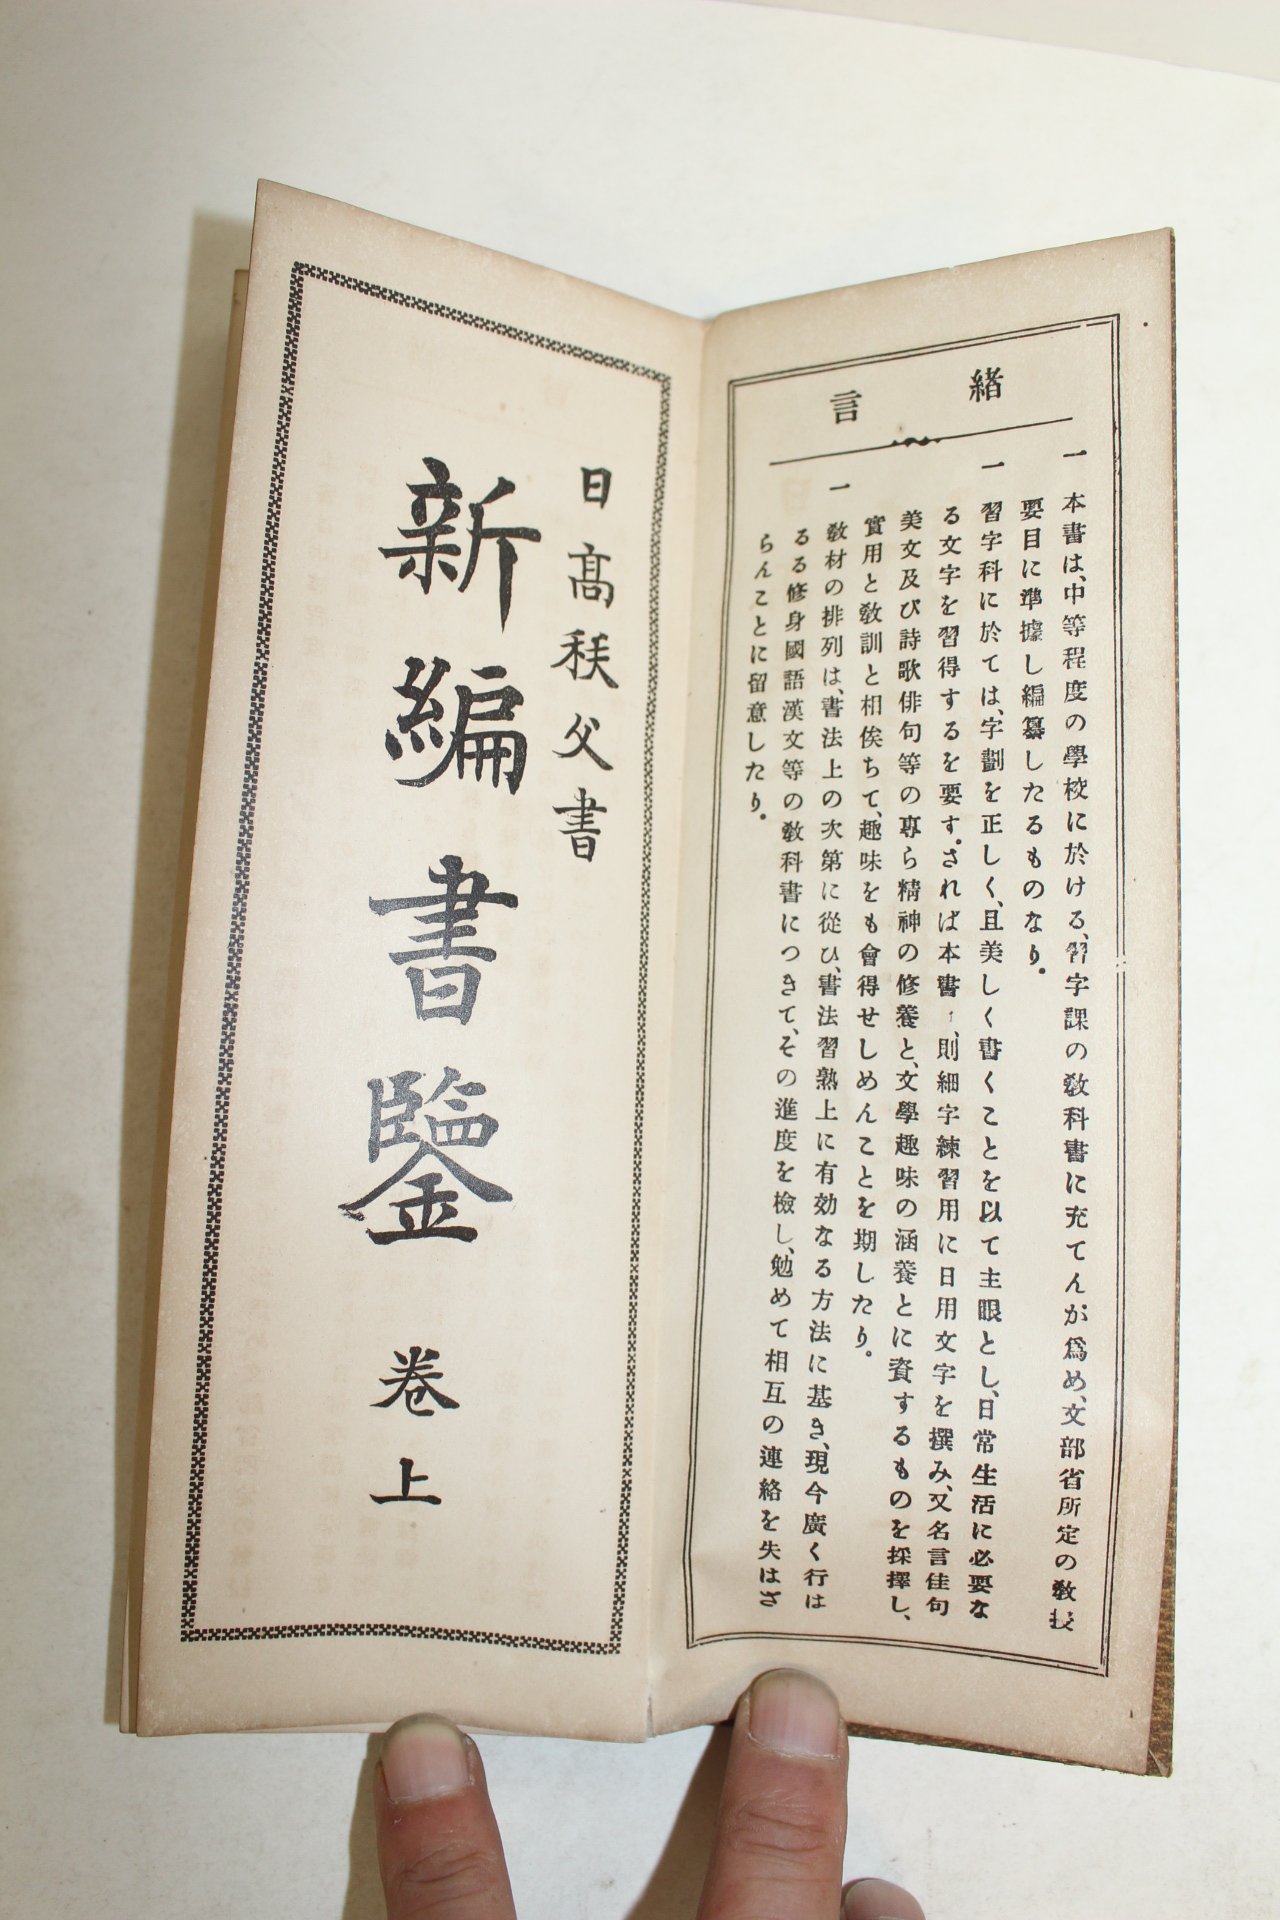 緒言
一 本書は、中等程度の學校に於ける、習字課の教科書に充てんが爲め、文部省所定の教授
要目に準據し編纂したるものなり。
一 習字科に於ては、字劃を正しく、且美しく書くことを以て主眼とし、日常生活に必要な
る文字を習得するを要す。されば本書は、則細字練習用に日用文字を撰み、又名言佳句
美文及び詩歌俳句等の專ら精神の修養と、文學趣味の涵養とに資するものを採擇し、
實用と教訓と相俟ちて、趣味をも會得せしめんことを期したり。
一 教材の排列は、書法上の次第に從ひ、書法習熟上に有効なる方法に基き、現今廣く行は
るる修身國語漢文等の教科書につきて、その進度を檢し、勉めて相互の連絡を失はざ
らんことに留意したり。
日高秩父書
新編書鑒 卷上